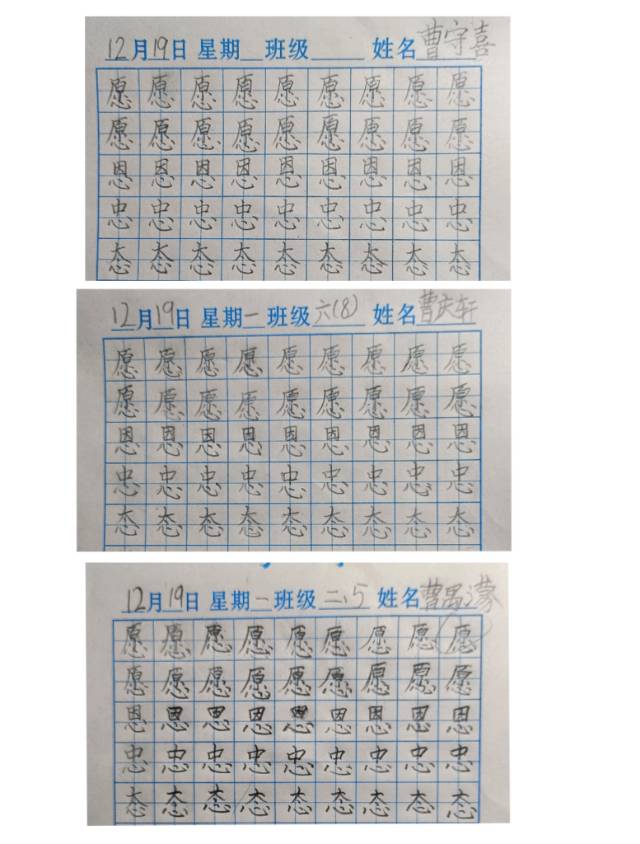 12月19日 星期 班级 姓名 曹守喜
愿愿愿愿愿愿愿愿愿
愿愿愿愿愿愿愿愿愿
恩恩恩恩恩恩恩恩恩
忠忠忠忠忠忠忠忠忠
态态态态态态态态态
12月19日 星期一 班级 六(8) 姓名 曹庆轩
愿愿愿愿愿愿愿愿愿
愿愿愿愿愿愿愿愿愿
恩恩恩恩恩恩恩恩恩
忠忠忠忠忠忠忠忠忠
态态态态态态态态态
12月19日 星期一 班级 二、5 姓名 曹
愿愿愿愿愿愿愿愿愿
愿愿愿愿愿愿愿愿愿
恩恩恩恩恩恩恩恩恩
忠忠忠忠忠忠忠忠忠
态态态态态态态态态